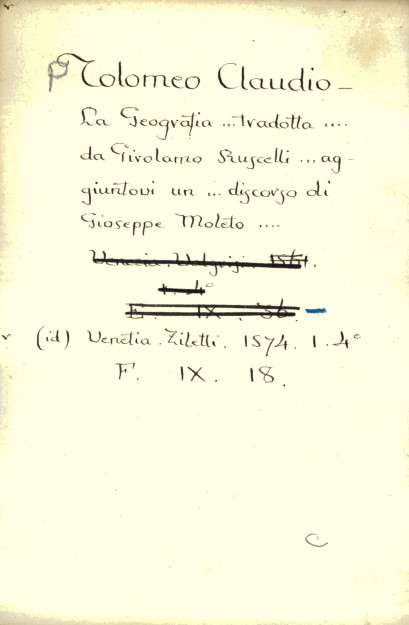 PTolomeo Claudio –
La Geografia ... tradotta ....
da Girolamo Ruscelli ... ag-
giuntovi un ... discorso di
Gioseppe Moleto ....
Venezia. Valgrisi. 1561.
1. 4°
F. IX. 36.
(id) Venetia. Ziletti. 1574. 1. 4°
F. IX. 18.
C